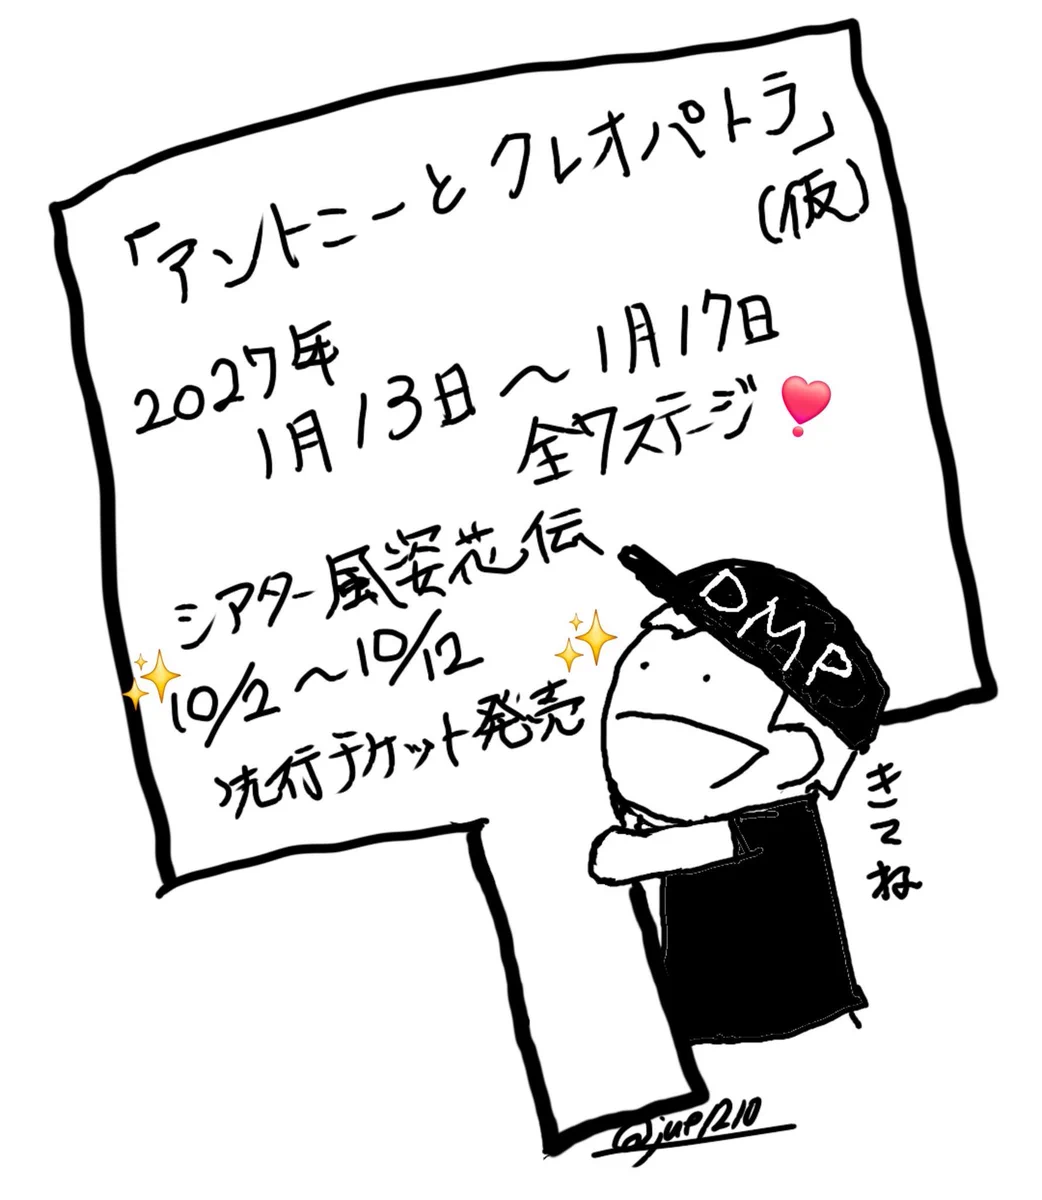 「アントニーとクレオパトラ」
(仮)
2027年
1月13日～1月17日
全7ステージ
シアター風姿花伝
10/2～10/12
先行チケット発売
DMP
きてね
@jup1210